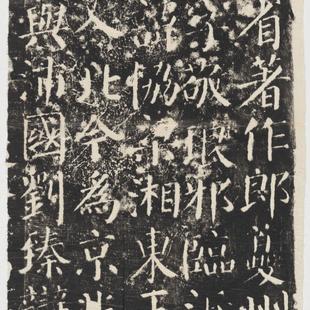 省著作郎夔州
字敬琅邪臨沂
諱協梁湘東王
入北今為京兆
與沛國劉臻辯